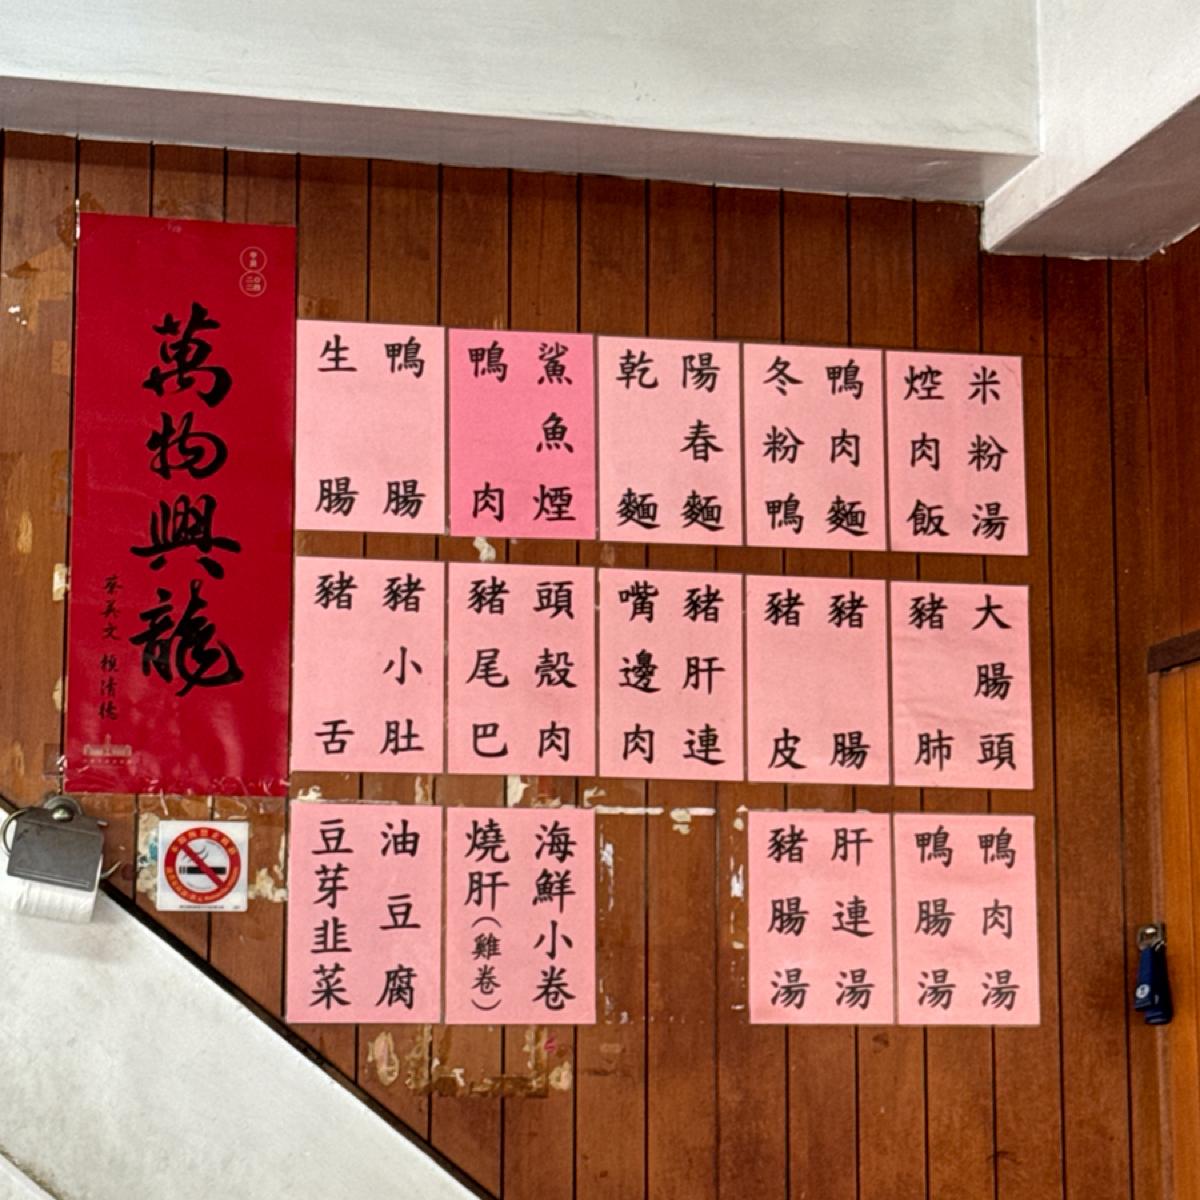 萬物興龍
蔡英文 賴清德
甲辰
二〇二四
米粉湯
焢肉飯
鴨肉麵
冬粉鴨
陽春麵
乾麵
鯊魚煙
鴨肉
鴨腸
生腸
大腸頭
豬肺
豬腸
豬皮
豬肝連
嘴邊肉
頭殼肉
豬尾巴
豬小肚
豬舌
鴨肉湯
鴨腸湯
肝連湯
豬腸湯
海鮮小卷
燒肝(雞卷)
油豆腐
豆芽韭菜